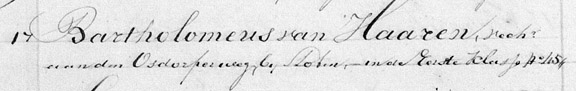 17 Bartholomeus van Haaren,
aan den Osdorperweg, bij Sloten, in de Eerste Klasse